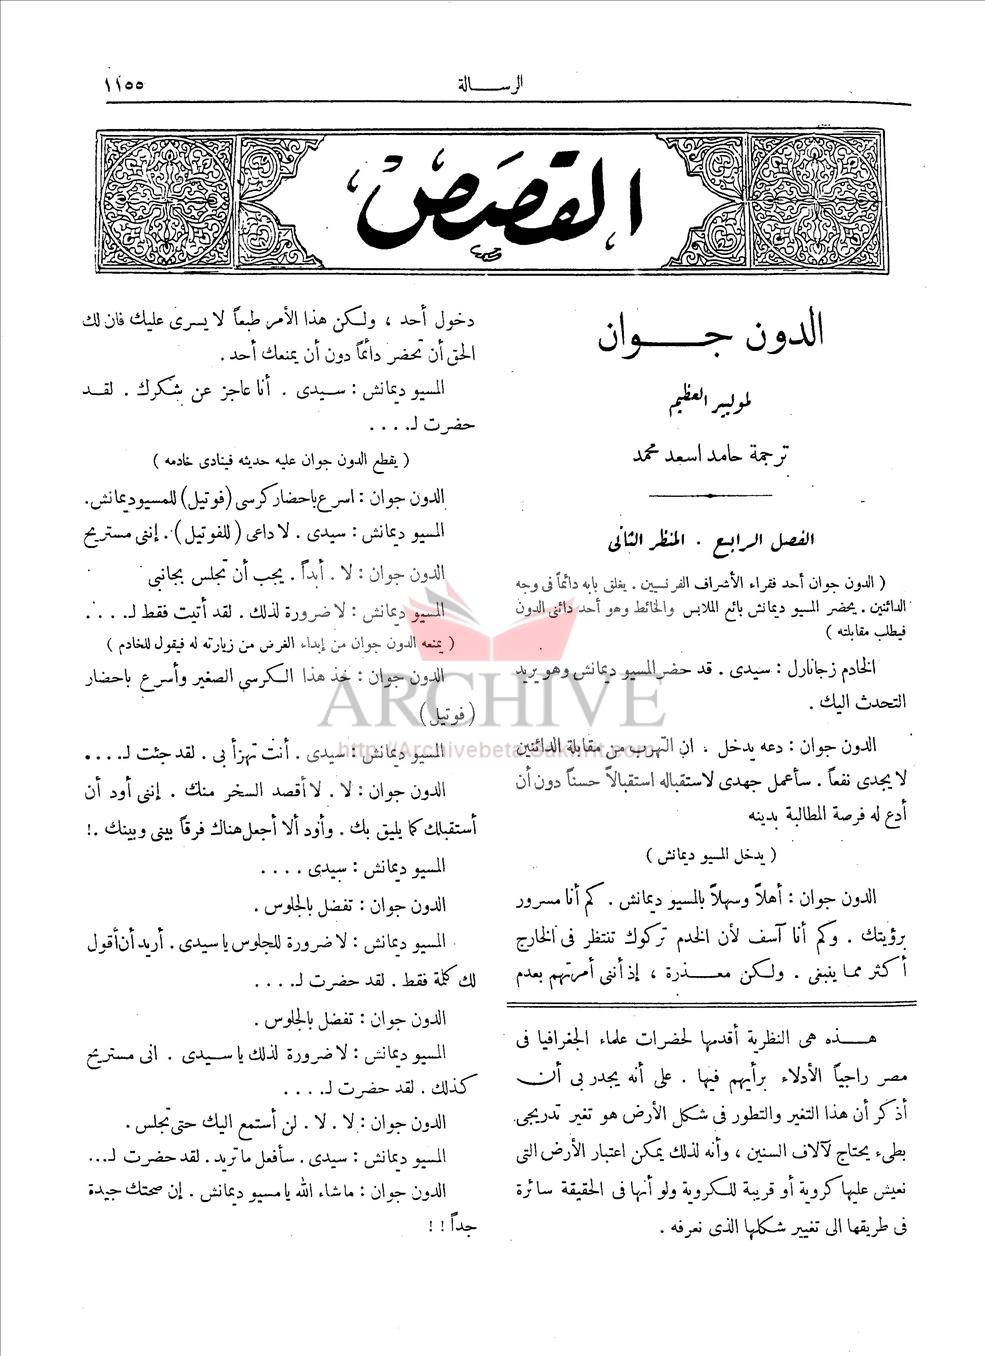 ١١٥٥
الرسالة
القصص
الدون جوان
لموليير العظيم
ترجمة حامد اسعد محمد
الفصل الرابع . المنظر الثانى
( الدون جوان أحد فقراء الأشراف الفرنسيين . يغلق بابه دائماً فى وجه
الدائنين . يحضر المسيو ديمانش بائع الملابس والحائط وهو أحد دائنى الدون
فيطلب مقابلته )
الخادم زجانارل : سيدى . قد حضر المسيو ديمانش وهو يريد
التحدث اليك .
الدون جوان : دعه يدخل ، ان الهرب من مقابلة الدائنين
لا يجدى نفعاً . سأعمل جهدى لاستقباله استقبالاً حسناً دون أن
أدع له فرصة المطالبة بدينه
( يدخل المسيو ديمانش )
الدون جوان : أهلاً وسهلاً بالمسيو ديمانش . كم أنا مسرور
برؤيتك . وكم أنا آسف لأن الخدم تركوك تنتظر فى الخارج
أكثر مما ينبغى . ولكن معذرة ، إذ أننى أمرتهم بعدم
هذه هى النظرية أقدمها لحضرات علماء الجغرافيا فى
مصر راجياً الأدلاء برأيهم فيها . على أنه يجدر بى أن
أذكر أن هذا التغير والتطور فى شكل الأرض هو تغير تدريجى
بطىء يحتاج لآلاف السنين ، وأنه لذلك يمكن اعتبار الأرض التى
نعيش عليها كروية أو قريبة للكروية ولو أنها فى الحقيقة سائرة
فى طريقها الى تغيير شكلها الذى نعرفه .
دخول أحد ، ولكن هذا الأمر طبعاً لا يسرى عليك فان لك
الحق أن تحضر دائماً دون أن يمنعك أحد .
المسيو ديمانش : سيدى . أنا عاجز عن شكرك . لقد
حضرت لـ . . . .
( يقطع الدون جوان عليه حديثه فينادى خادمه )
الدون جوان : اسرع باحضار كرسى (فوتيل) للمسيو ديمانش .
المسيو ديمانش : سيدى . لا داعى ( للفوتيل ) . إننى مستريح
الدون جوان : لا . أبداً . يجب أن تجلس بجانبى
المسيو ديمانش : لا ضرورة لذلك . لقد أتيت فقط لـ . . . .
( يمنعه الدون جوان من إبداء الغرض من زيارته له فيقول للخادم )
الدون جوان : خذ هذا الكرسي الصغير وأسرع باحضار
(فوتيل)
المسيو ديمانش : سيدى . أنت تهزأ بى . لقد جئت لـ . . . .
الدون جوان : لا . لا أقصد السخر منك . إننى أود أن
أستقبلك كما يليق بك . وأود ألا أجعل هناك فرقاً بينى وبينك . !
المسيو ديمانش : سيدى . . . .
الدون جوان : تفضل بالجلوس .
المسيو ديمانش : لا ضرورة للجلوس يا سيدى . أريد أن أقول
لك كلمة فقط . لقد حضرت لـ . . . .
الدون جوان : تفضل بالجلوس .
المسيو ديمانش : لا ضرورة لذلك يا سيدى . انى مستريح
كذلك . لقد حضرت لـ . . . .
الدون جوان : لا . لا . لن أستمع اليك حتى تجلس .
المسيو ديمانش : سيدى . سأفعل ما تريد . لقد حضرت لـ . . .
الدون جوان : ماشاء الله يا مسيو ديمانش . إن صحتك جيدة
جداً ! !
ARCHIVE
http://Archivebeta.Sakhrit.com